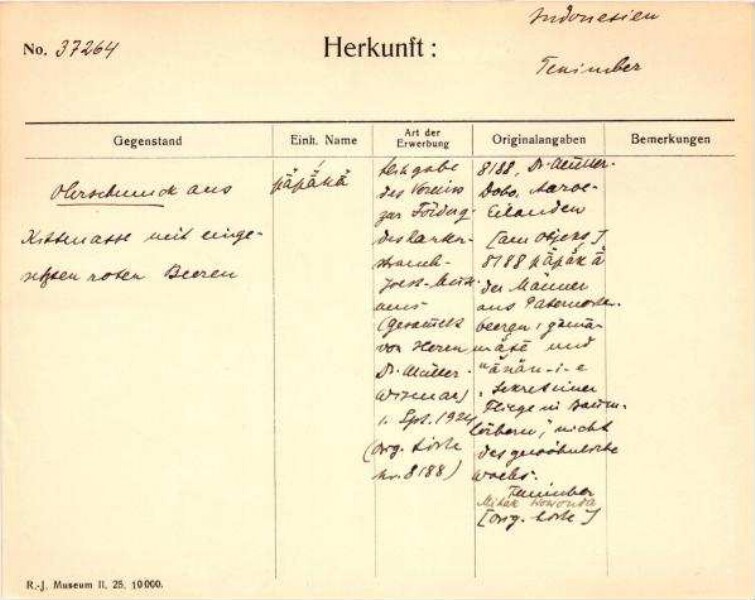 No. 37264
Herkunft:
Indonesien
Tenimber
Gegenstand
Einh. Name
Art der Erwerbung
Originalangaben
Bemerkungen
Ohrschmuck aus
Kittmasse mit einge-
setzten roten Beeren
Leihgabe
des Vereins
zur Förderg.
des Rauten-
strauch-
Joest-Mus-
eums
(gesammelt
von Herrn
Dr. Müller-
Wismar)
1. Sept. 1924
(orig. Liste
Nr. 8188)
8188, Dr. Müller.
Dobo, Aaroe-
Eilanden
[am Objekt]
8188
der Männer
aus Paternoster-
beeren,
und
Sekret einer
Fliege in
nicht
des gewöhnlichen
Tenimber
[orig. Liste]
R.-J. Museum II. 25. 10000.